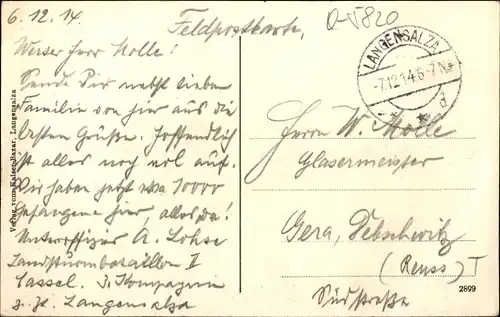 6.12.14.
Feldpostkarte,
a-5820
Werter Herr Molle!
Sende Dir nebst lieben
Familie von hier aus die
besten Grüße. Hoffendlich
ist alles noch wol auf.
Wir haben jetzt etwa 10000
Gefangene hier, alles da!
Unteroffizier A. Lohse
Landsturmbataillon II
Cassel. 3. Kompagnie
z. Zt. Langensalza
LANGENSALZA
-7.12.14.6-7.N.
d
Herrn W. Molle
Glasermeister
Gera, Debschwitz
(Reuss)
Südstraße
2899
Verlag vom Kaiser-Bazar, Langensalza